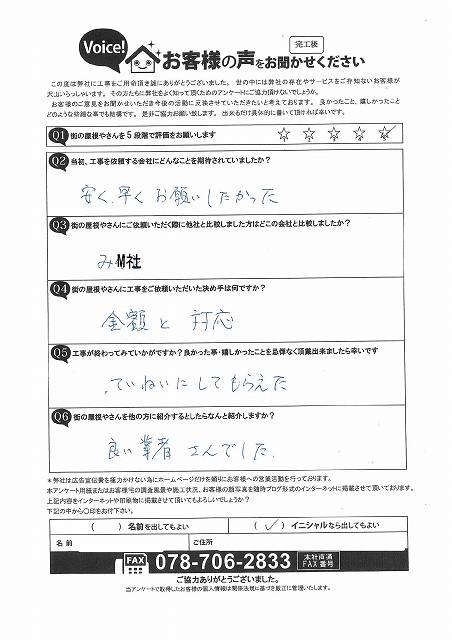 Voice!
お客様の声をお聞かせください
完工後
この度は弊社に工事をご用命頂き誠にありがとうございました。 世の中には弊社の存在やサービスをご存知ないお客様が
沢山いらっしゃいます。 その方たちに弊社をもよく知って頂くためのアンケートにご協力頂けないでしょうか。
お客様のご意見をお聞かせいただき今後の活動に反映させていただきたいと考えております。 良かったこと、嬉しかったこと
どのような些細な事でも結構です。 是非ご協力お願い致します。 出来るだけ具体的に書いて頂ければ幸いです。
Q1 街の屋根やさんを5段階で評価をお願いします ☆ ☆ ☆ ☆ ☆
Q2 当初、工事を依頼する会社にどんなことを期待されていましたか?
安く、早く お願いしたかった
Q3 街の屋根やさんにご依頼いただく際に他社と比較しました方はどこの会社と比較しましたか?
み M社
Q4 街の屋根やさんに工事をご依頼いただいた決め手は何ですか?
金額と 対応
Q5 工事が終わってみていかがですか?良かった事・嬉しかったことを忌憚なく頂戴出来ましたら幸いです
ていねいにしてもらえた
Q6 街の屋根やさんを他の方に紹介するとしたらなんと紹介しますか?
良い業者さんでした。
*弊社は広告宣伝費を極力かけない為にホームページだけを頼りにお客様への営業活動を行っております。
本アンケート用紙またはお客様宅の調査風景や施工状況、お客様の顔写真を随時ブログ形式のインターネットに掲載させて頂いております。
上記内容をインターネットや印刷物に掲載させて頂いてもよろしいでしょうか?
下記の中から〇印をお付け下さい。
( ) 名前を出してもよい ( ✓ ) イニシャルなら出してもよい
名 前 ご住所
FAX 078-706-2833 本社直通 FAX番号
ご協力ありがとうございました。
当アンケートで取得したお客様の個人情報は関係法規に基づき厳正に管理いたします。